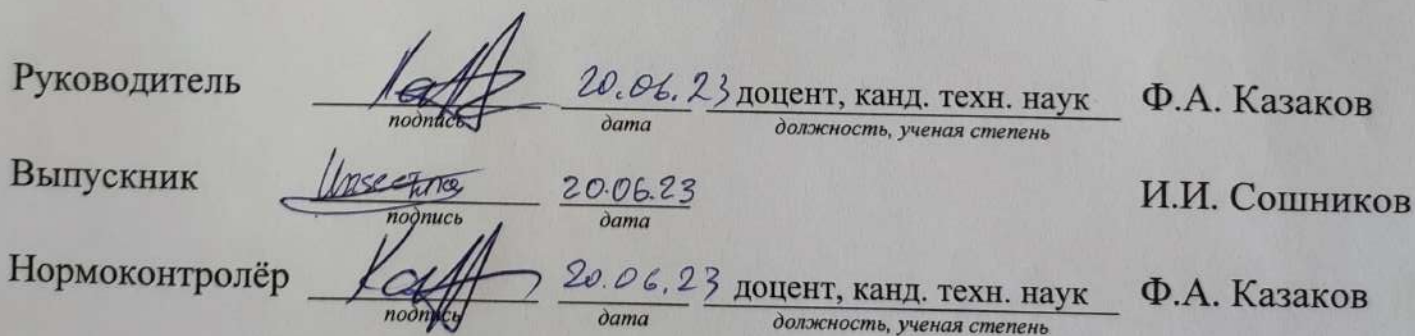 Руководитель 20.06.23 доцент, канд. техн. наук Ф.А. Казаков
подпись дата должность, ученая степень
Выпускник 20.06.23 И.И. Сошников
подпись дата
Нормоконтролёр 20.06.23 доцент, канд. техн. наук Ф.А. Казаков
подпись дата должность, ученая степень